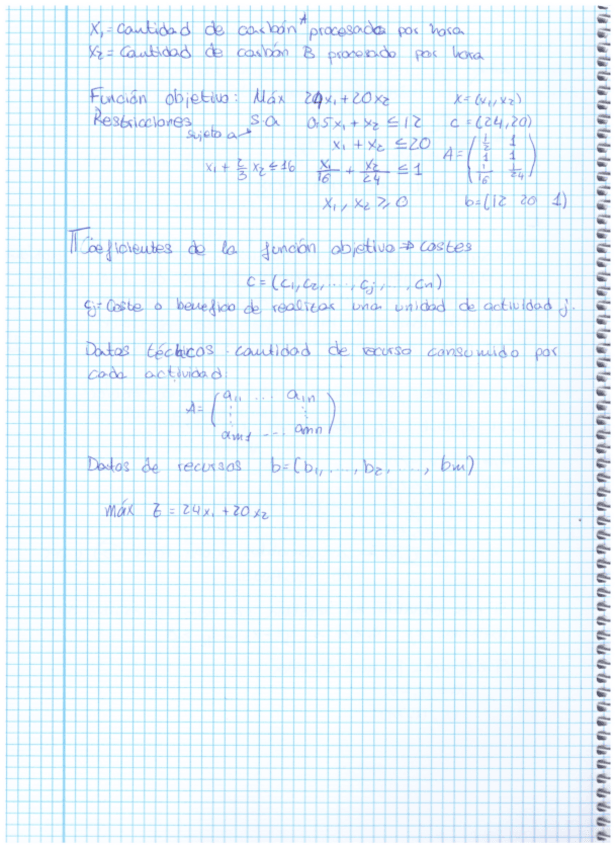 X₁ = Cantidad de carbón A procesada por hora
X₂ = Cantidad de carbón B procesado por hora
Función objetivo: Máx 24x₁ + 20x₂ X = (x₁, x₂)
Restricciones s.a 0.5x₁ + x₂ ≤ 12 C = (24, 20)
sujeto a → x₁ + x₂ ≤ 20 A = (1/2 1
1 1
1/16 1/24)
x₁ + 2/3 x₂ ≤ 16 x₁/16 + x₂/24 ≤ 1
x₁, x₂ ≥ 0 b = (12 20 1)
Coeficientes de la función objetivo ⇒ costes
C = (c₁, c₂, ..., cj, ..., cn)
cj = Coste o beneficio de realizar una unidad de actividad j.
Datos técnicos · cantidad de recurso consumido por
cada actividad:
A = (a₁₁ ... a₁n
⋮ ⋮
am1 ... amn)
Datos de recursos b = (b₁, ..., b₂, ..., bm)
máx Z = 24x₁ + 20x₂